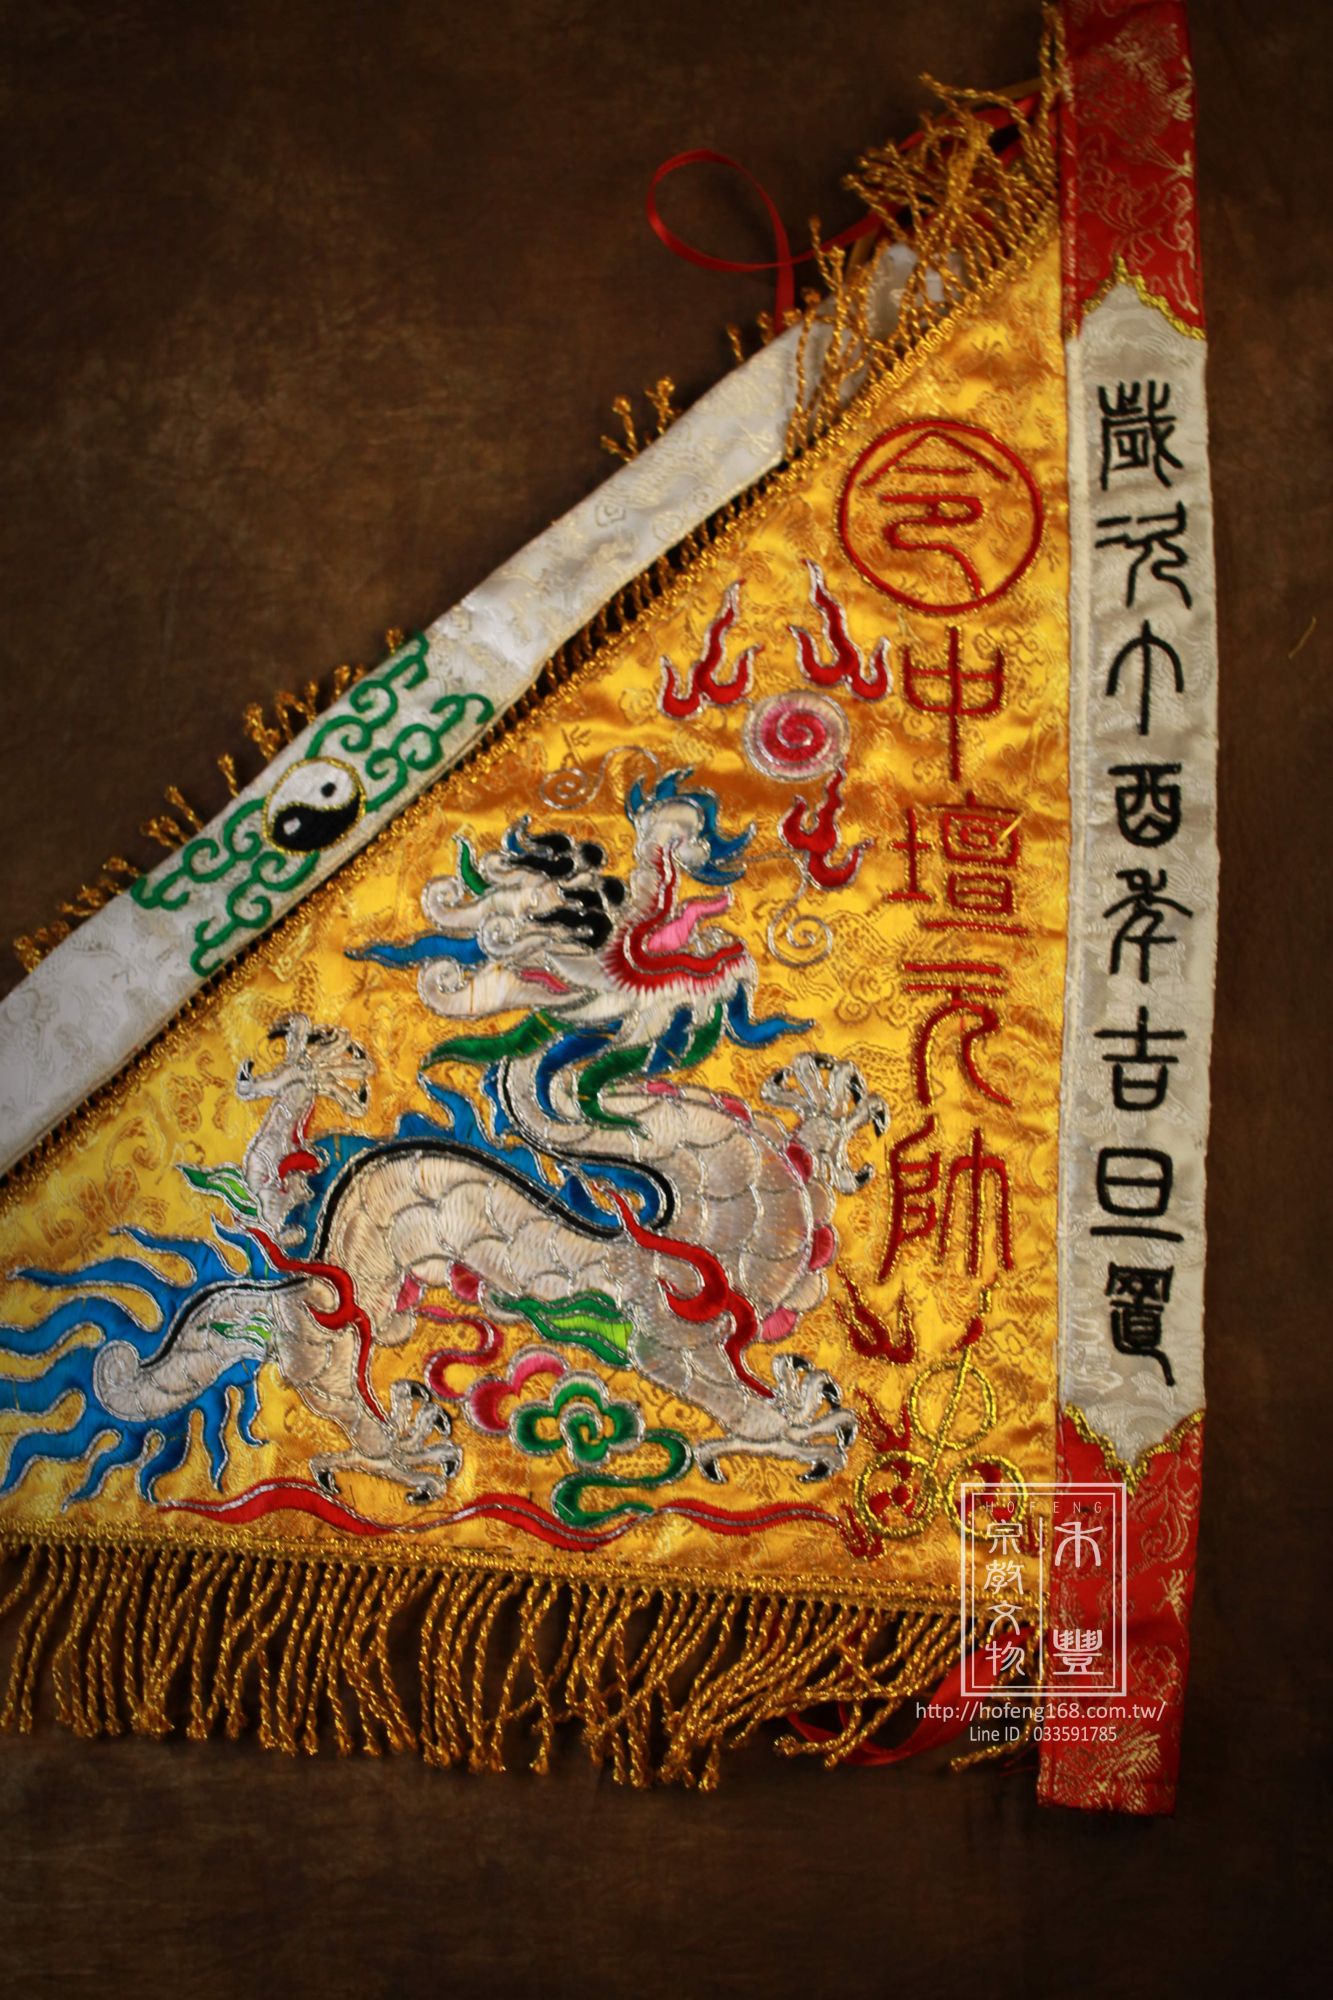 歲次丁酉年吉旦置
令
中壇元帥
HOFENG
禾豐
宗教文物
http://hofeng168.com.tw/
Line ID : 033591785